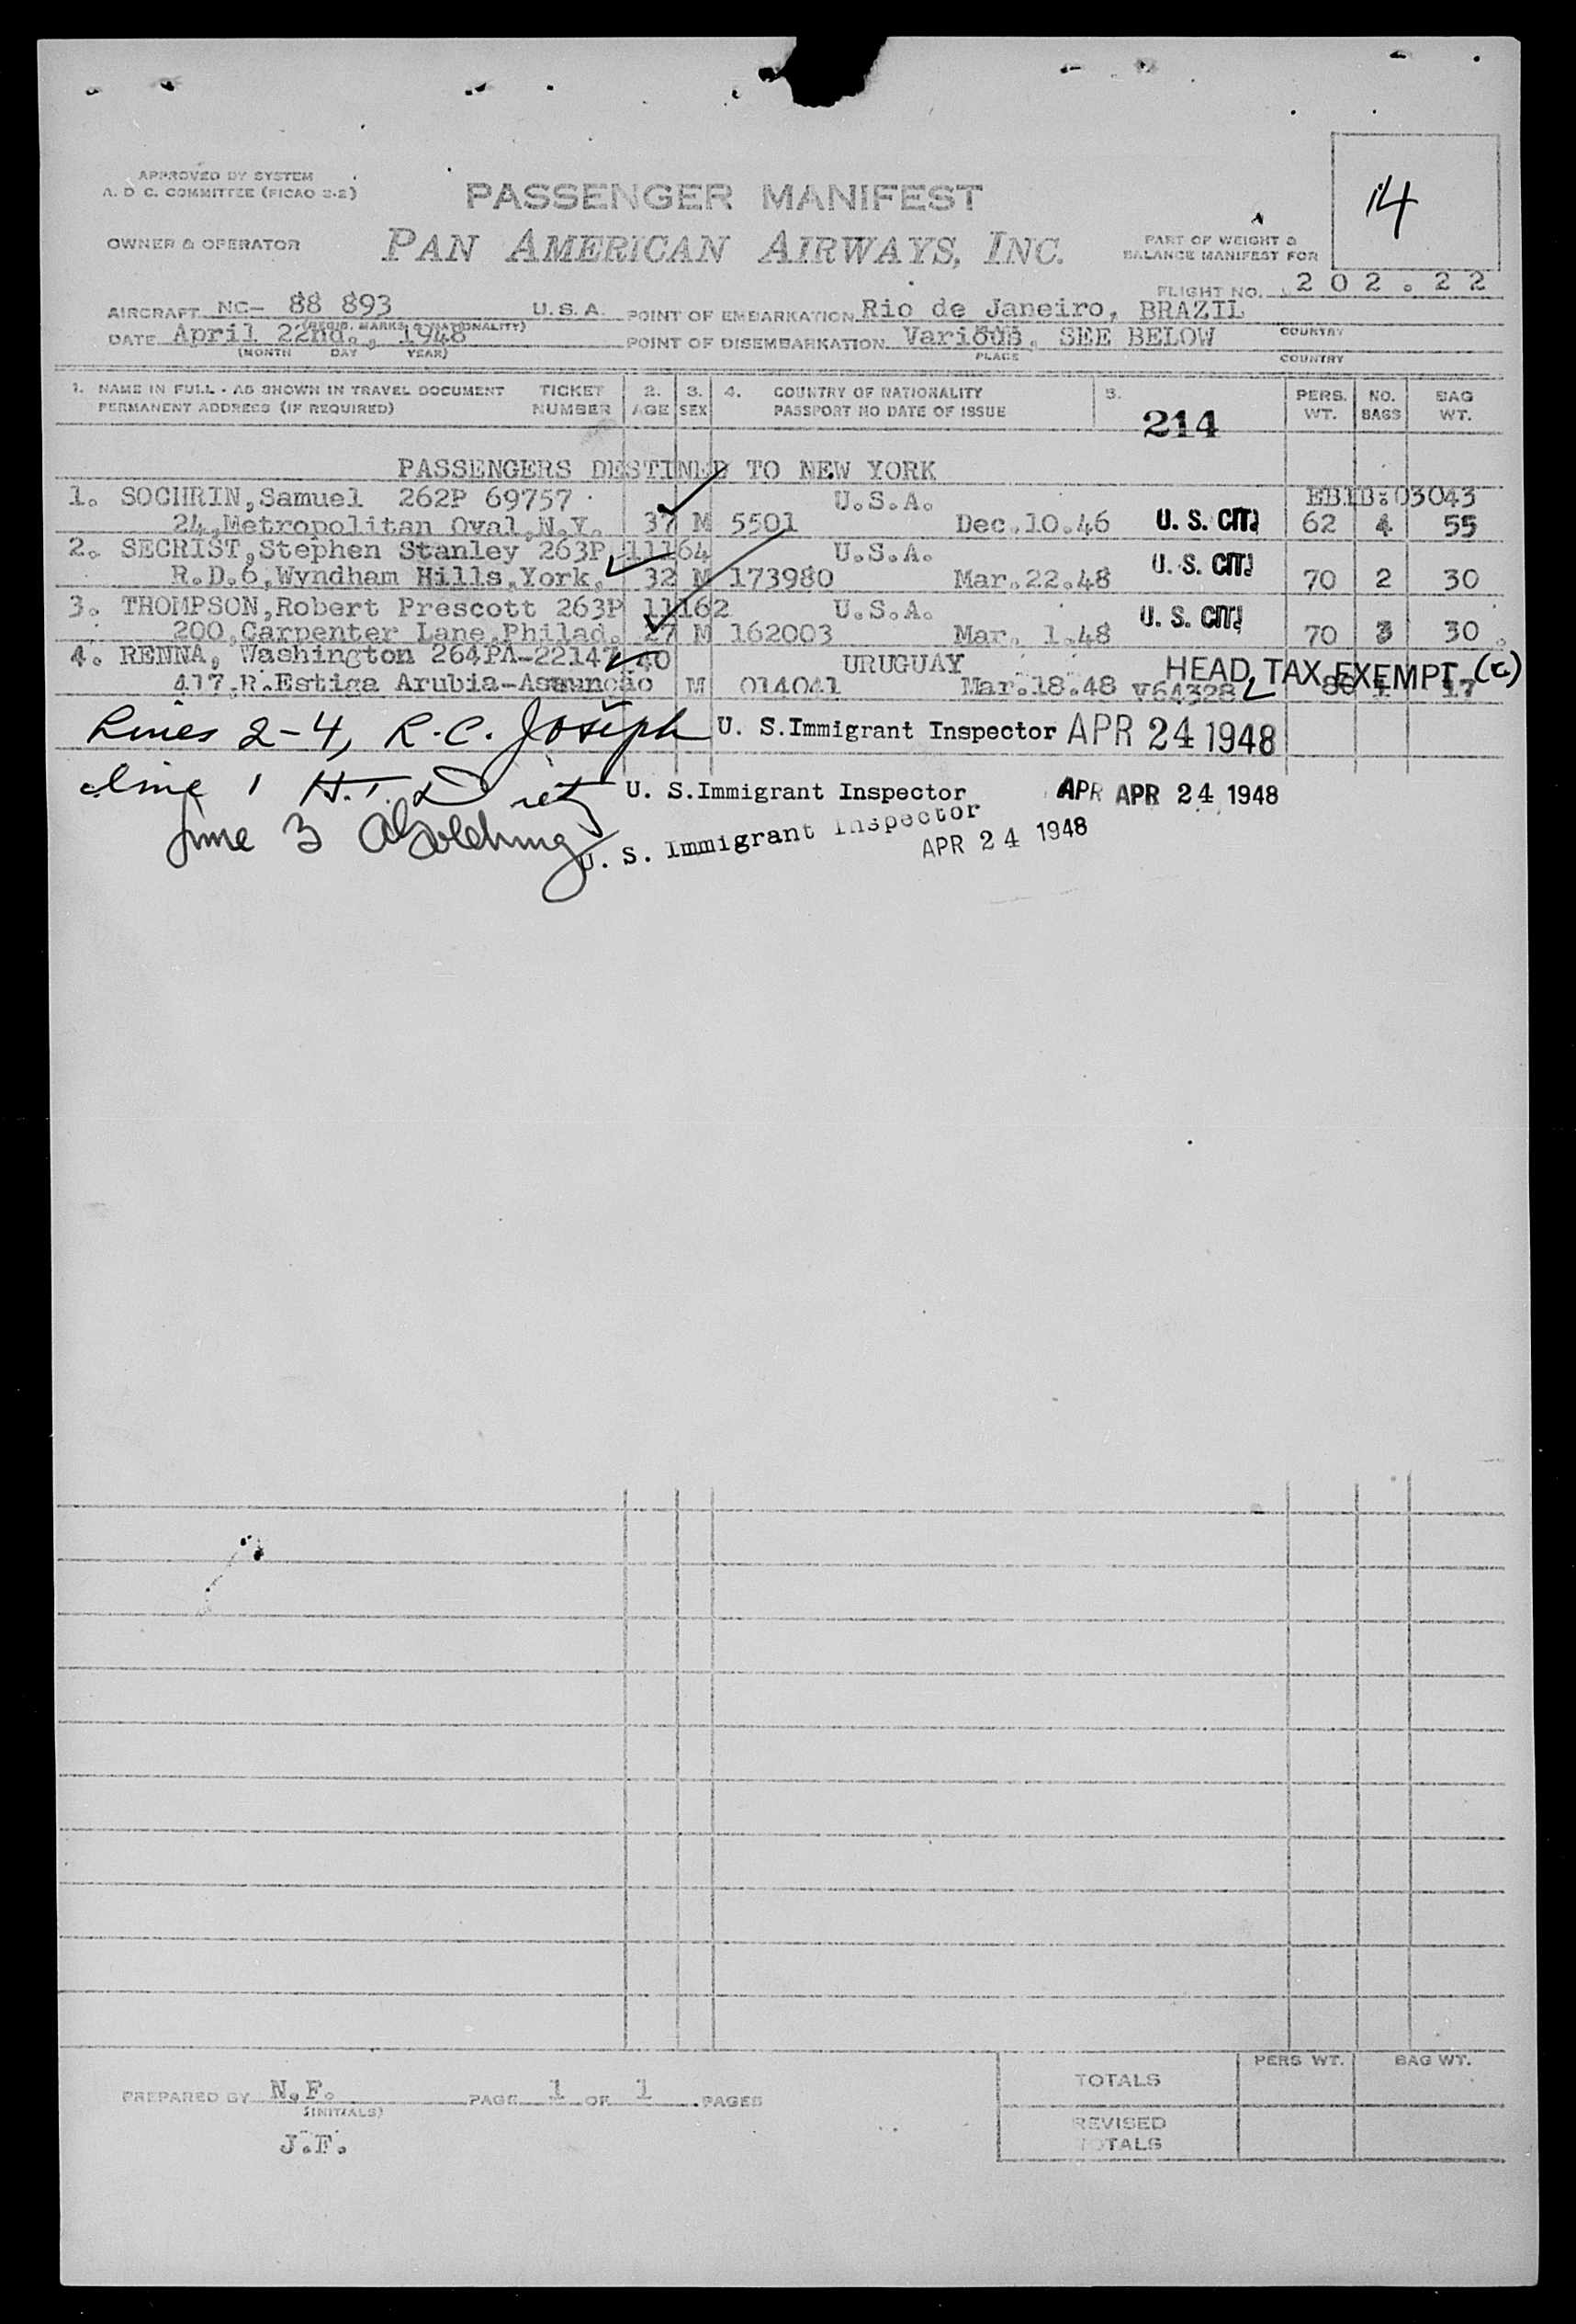 14
APPROVED BY SYSTEM
A. D C. COMMITTEE (FICAO 2-2)
PASSENGER MANIFEST
OWNER & OPERATOR PAN AMERICAN AIRWAYS, INC.
PART OF WEIGHT &
BALANCE MANIFEST FOR
FLIGHT NO. 202.22
AIRCRAFT NC- 88 893 U.S.A. POINT OF EMBARKATION Rio de Janeiro, BRAZIL
(REGIS. MARKS & NATIONALITY) COUNTRY
DATE April 22nd., 1948 POINT OF DISEMBARKATION Various, SEE BELOW
(MONTH DAY YEAR) PLACE COUNTRY
1. NAME IN FULL - AS SHOWN IN TRAVEL DOCUMENT TICKET 2. 3. 4. COUNTRY OF NATIONALITY 5. PERS. NO. BAG
PERMANENT ADDRESS (IF REQUIRED) NUMBER AGE SEX PASSPORT NO DATE OF ISSUE WT. BAGS WT.
214
PASSENGERS DESTINED TO NEW YORK
1. SOCHRIN,Samuel 262P 69757 U.S.A. EBIB:03043
24,Metropolitan Oval,N.Y. 37 M 5501 Dec.10.46 U. S. CIT. 62 4 55
2. SECRIST,Stephen Stanley 263P 11164 U.S.A.
R.D.6,Wyndham Hills,York, 32 M 173980 Mar.22.48 U. S. CIT. 70 2 30
3. THOMPSON,Robert Prescott 263P 11162 U.S.A.
200,Carpenter Lane,Philad. 27 M 162003 Mar. 1.48 U. S. CIT. 70 3 30
4. RENNA, Washington 264PA-22147 40 URUGUAY HEAD TAX EXEMPT (c)
417.R.Estiga Arubia-Assunção M 014041 Mar.18.48 V64328 17
Lines 2-4, R.C. Joseph U. S.Immigrant Inspector APR 24 1948
Line 1 H.T. Dietz U. S.Immigrant Inspector APR APR 24 1948
Line 3 U. S. Immigrant Inspector
APR 24 1948
PERS WT. BAG WT.
TOTALS
PREPARED BY N.F. PAGE 1 OF 1 PAGES
(INITIALS)
REVISED
TOTALS
J.F.